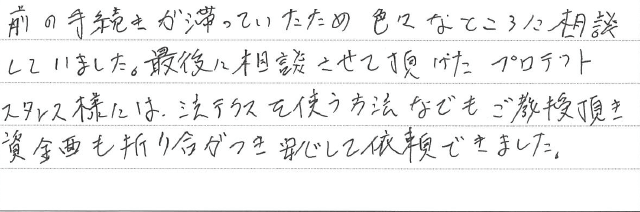 前の手続きが滞っていたため色々なところに相談
していました。最後に相談させて頂けたプロテクト
スタンス様には、法テラスを使う方法なでもご教授頂き
資金面も折り合がつき安心して依頼できました。